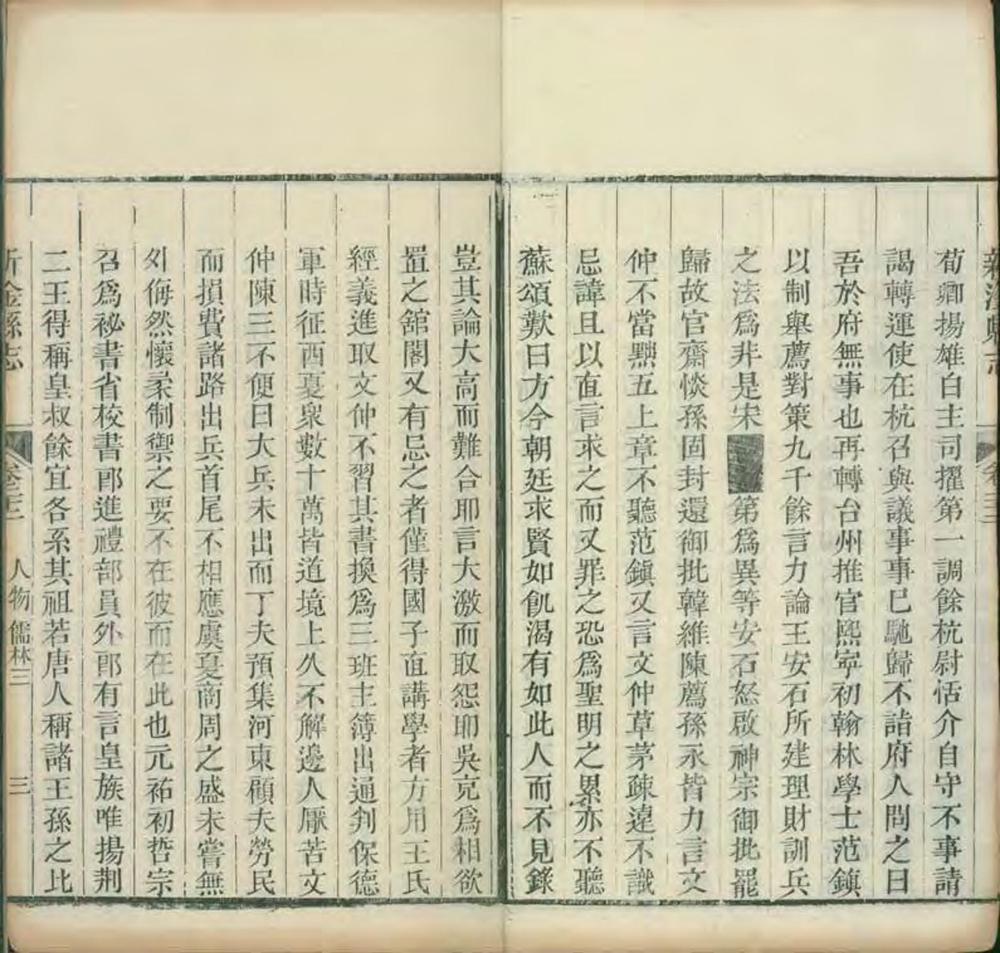 新淦縣志
卷二三
荀卿揚雄白主司擢第一調餘杭尉恬介自守不事請
謁轉運使在杭召與議事事已馳歸不詣府人問之曰
吾於府無事也再轉台州推官熙寧初翰林學士范鎮
以制舉薦對策九千餘言力論王安石所建理財訓兵
之法為非是宋第為異等安石怒啟神宗御批罷
歸故官齋惔孫固封還御批韓維陳薦孫永皆力言文
仲不當黜五上章不聽范鎮又言文仲草茅疎遠不識
忌諱且以直言求之而又罪之恐為聖明之累亦不聽
蘇頌歎曰方今朝廷求賢如飢渴有如此人而不見錄
豈其論大高而難合耶言大激而取怨耶吳克為相欲
置之舘閣又有忌之者僅得國子直講學者方用王氏
經義進取文仲不習其書換為三班主簿出通判保德
軍時征西夏衆數十萬皆道境上久不解邊人厭苦文
仲陳三不便曰大兵未出而丁夫預集河東顧夫勞民
而損費諸路出兵首尾不相應虞夏商周之盛未嘗無
外侮然懷柔制禦之要不在彼而在此也元祐初哲宗
召爲祕書省校書郎進禮部員外郎有言皇族唯揚荆
二王得稱皇叔餘宜各系其祖若唐人稱諸王孫之比
新淦縣志
卷二三
人物 儒林三
三